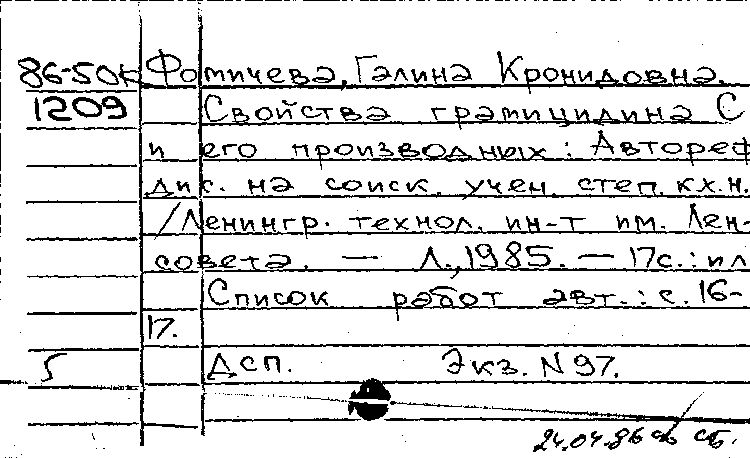 86-50к Фомичева, Галина Кронидовна.
1209 Свойства грамицидина С
и его производных: Автореф
дис. на соиск. учен. степ. к.х.н.
/Ленингр. технол. ин-т им. Лен-
совета. — Л., 1985. — 17с.: ил
Список работ авт.: с. 16-
17.
5 Дсп. Экз. N 97.
24.04.86